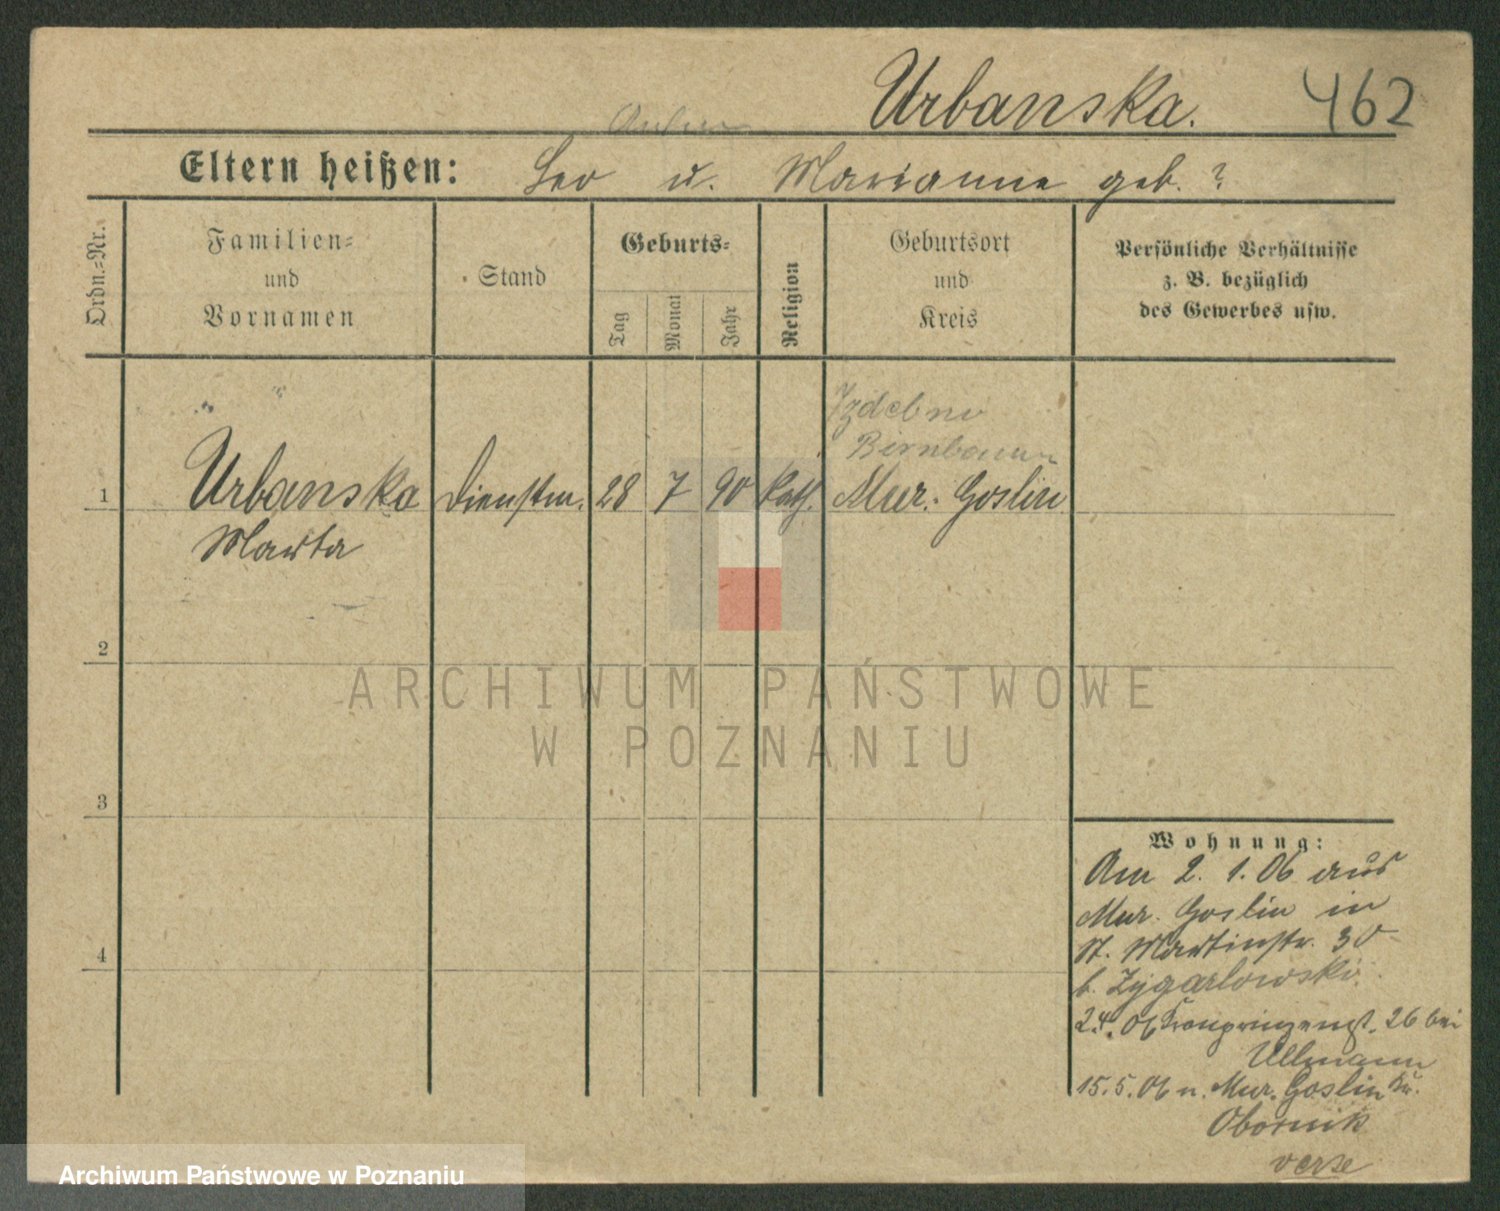 Urbanska. 462
Eltern heißen: Leo u. Marianne geb. ?
Ordn.-Nr.
Familien-
und
Vornamen
Stand
Geburts-
Tag
Monat
Jahr
Religion
Geburtsort
und
Kreis
Persönliche Verhältnisse
z. B. bezüglich
des Gewerbes usw.
Izdebno
Birnbaum
1 Urbanska Dienstm. 28 7 90 Kath. Mur. Goslin
Marta
2
3
4
Wohnung:
Am 2. 1. 06 aus
Mur. Goslin in
St. Martinstr. 30
b. Zygarlowski
24. 06 Kronprinzenst. 26 bei
Ullmann
15. 5. 06 n. Mur. Goslin Kr.
Obornik
verze
ARCHIWUM PAŃSTWOWE
W POZNANIU
Archiwum Państwowe w Poznaniu